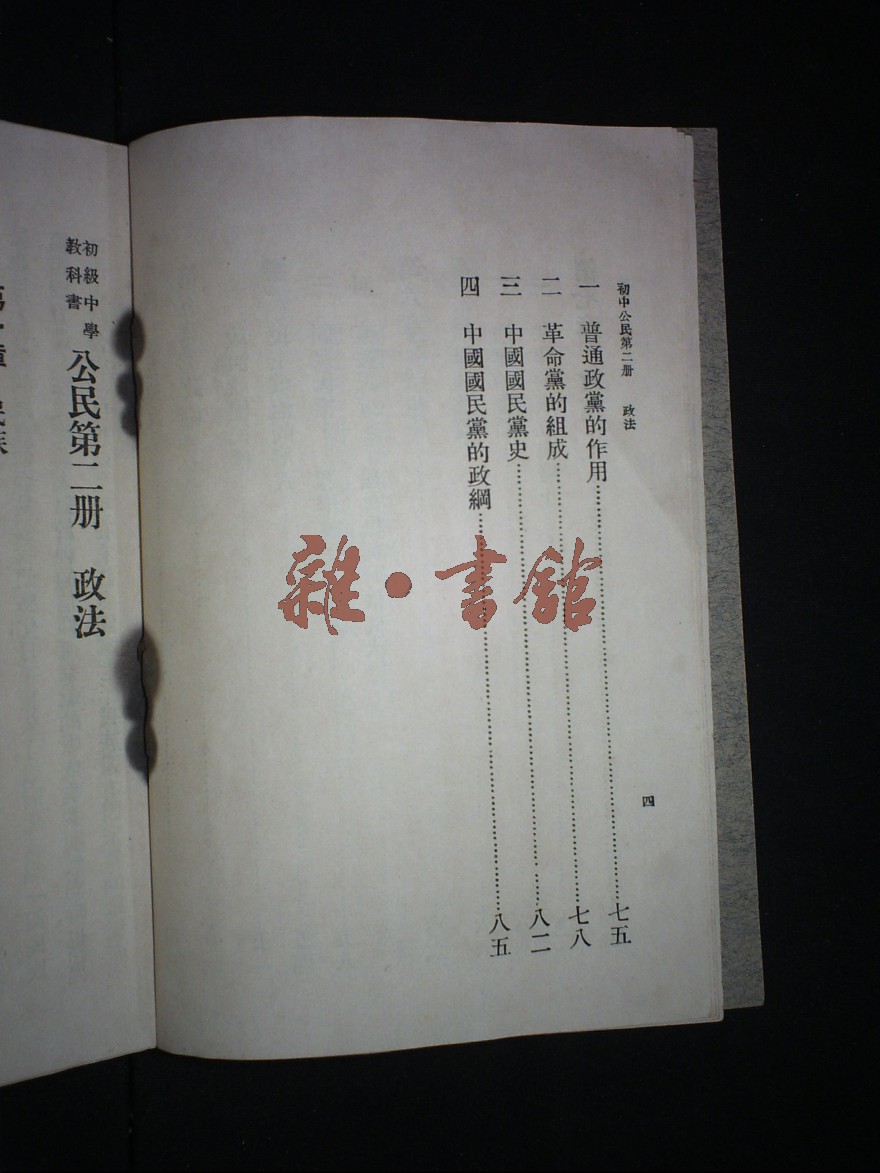 初中公民第二册　政法
四
一　普通政黨的作用……七五
二　革命黨的組成……七八
三　中國國民黨史……八二
四　中國國民黨的政綱……八五
初級中學
教科書
公民第二册　政法
雜·書館